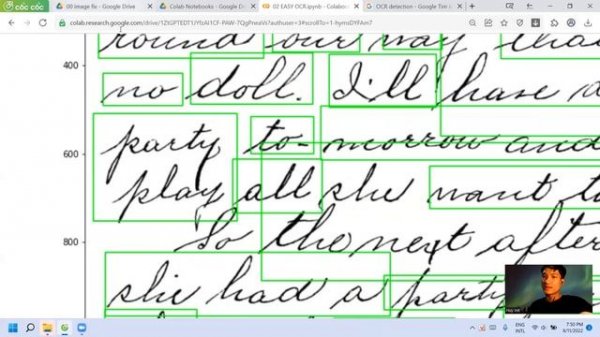 cốc cốc
00 image fix - Google Drive
Colab Notebooks - Google D
02 EASY OCR.ipynb - Colabo
OCR detection - Google Tìm
colab.research.google.com/drive/
round our way tha
400
no doll. I'll have
party to-morrow and
600
play all she want to
So the next after
800
she had a party
ENG
INTL
7:50 PM
8/11/2022